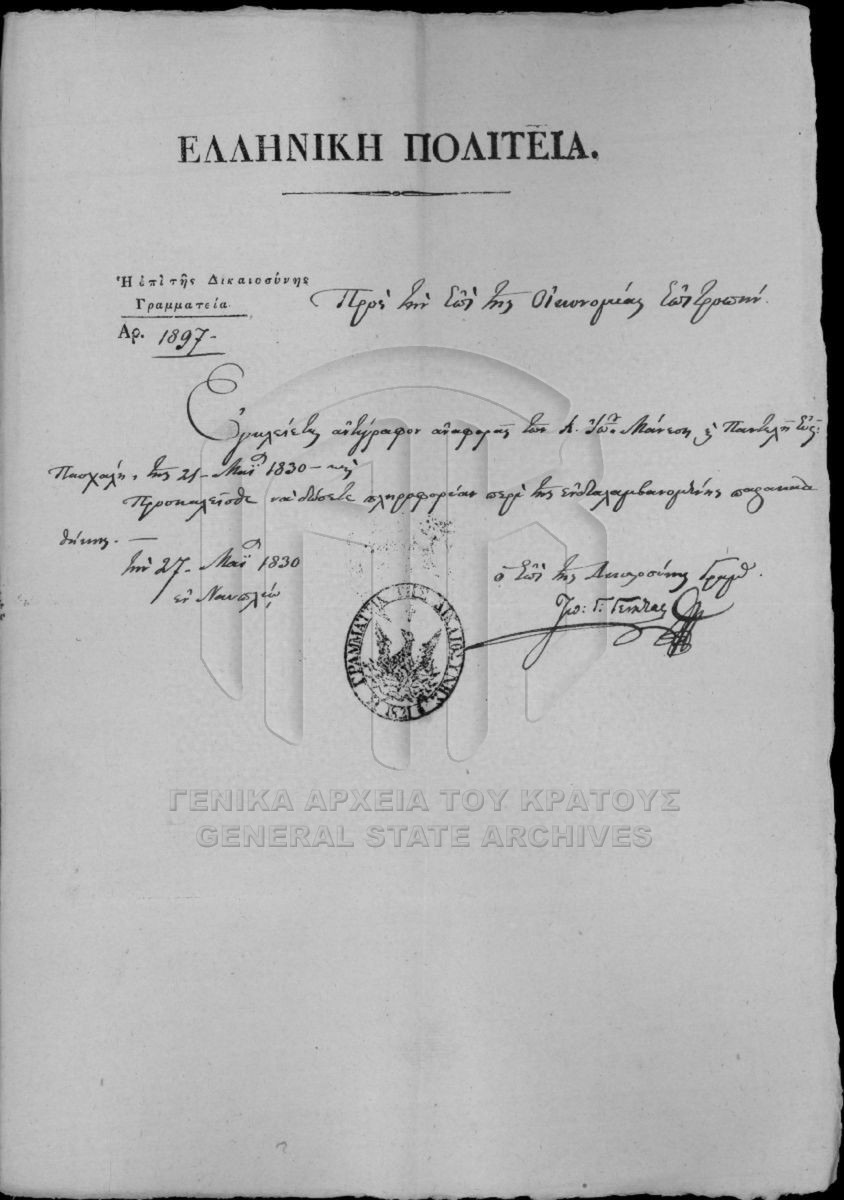 ΕΛΛΗΝΙΚΗ ΠΟΛΙΤΕΙΑ.
Ἡ ἐπὶ τῆς Δικαιοσύνης
Γραμματεία.
Ἀρ. 1897-
Πρὸς τὴν ἐπὶ τῆς Οἰκονομίας ἐπιτροπήν.
Ἐγκλείεται ἀντίγραφον ἀναφορᾶς τῶν Κ. Ἰω: Μάνεση, Παντελῆ
Πασχάλη, τῆς 21- Μαΐου 1830 -
Προσκαλεῖσθε νὰ δώσετε πληροφορίαν περὶ τῆς ἐνδιαλαμβανομένης παρακατα
θήκης. —
τὴν 27- Μαΐου 1830
ἐν Ναυπλίῳ
ὁ ἐπὶ τῆς Δικαιοσύνης Γραμμ.
Ἰω: Γ. Γενατᾶς
ΓΡΑΜΜΑΤΕΙΑ ΤΗΣ ΔΙΚΑΙΟΣΥΝΗΣ
ΓΕΝΙΚΑ ΑΡΧΕΙΑ ΤΟΥ ΚΡΑΤΟΥΣ
GENERAL STATE ARCHIVES